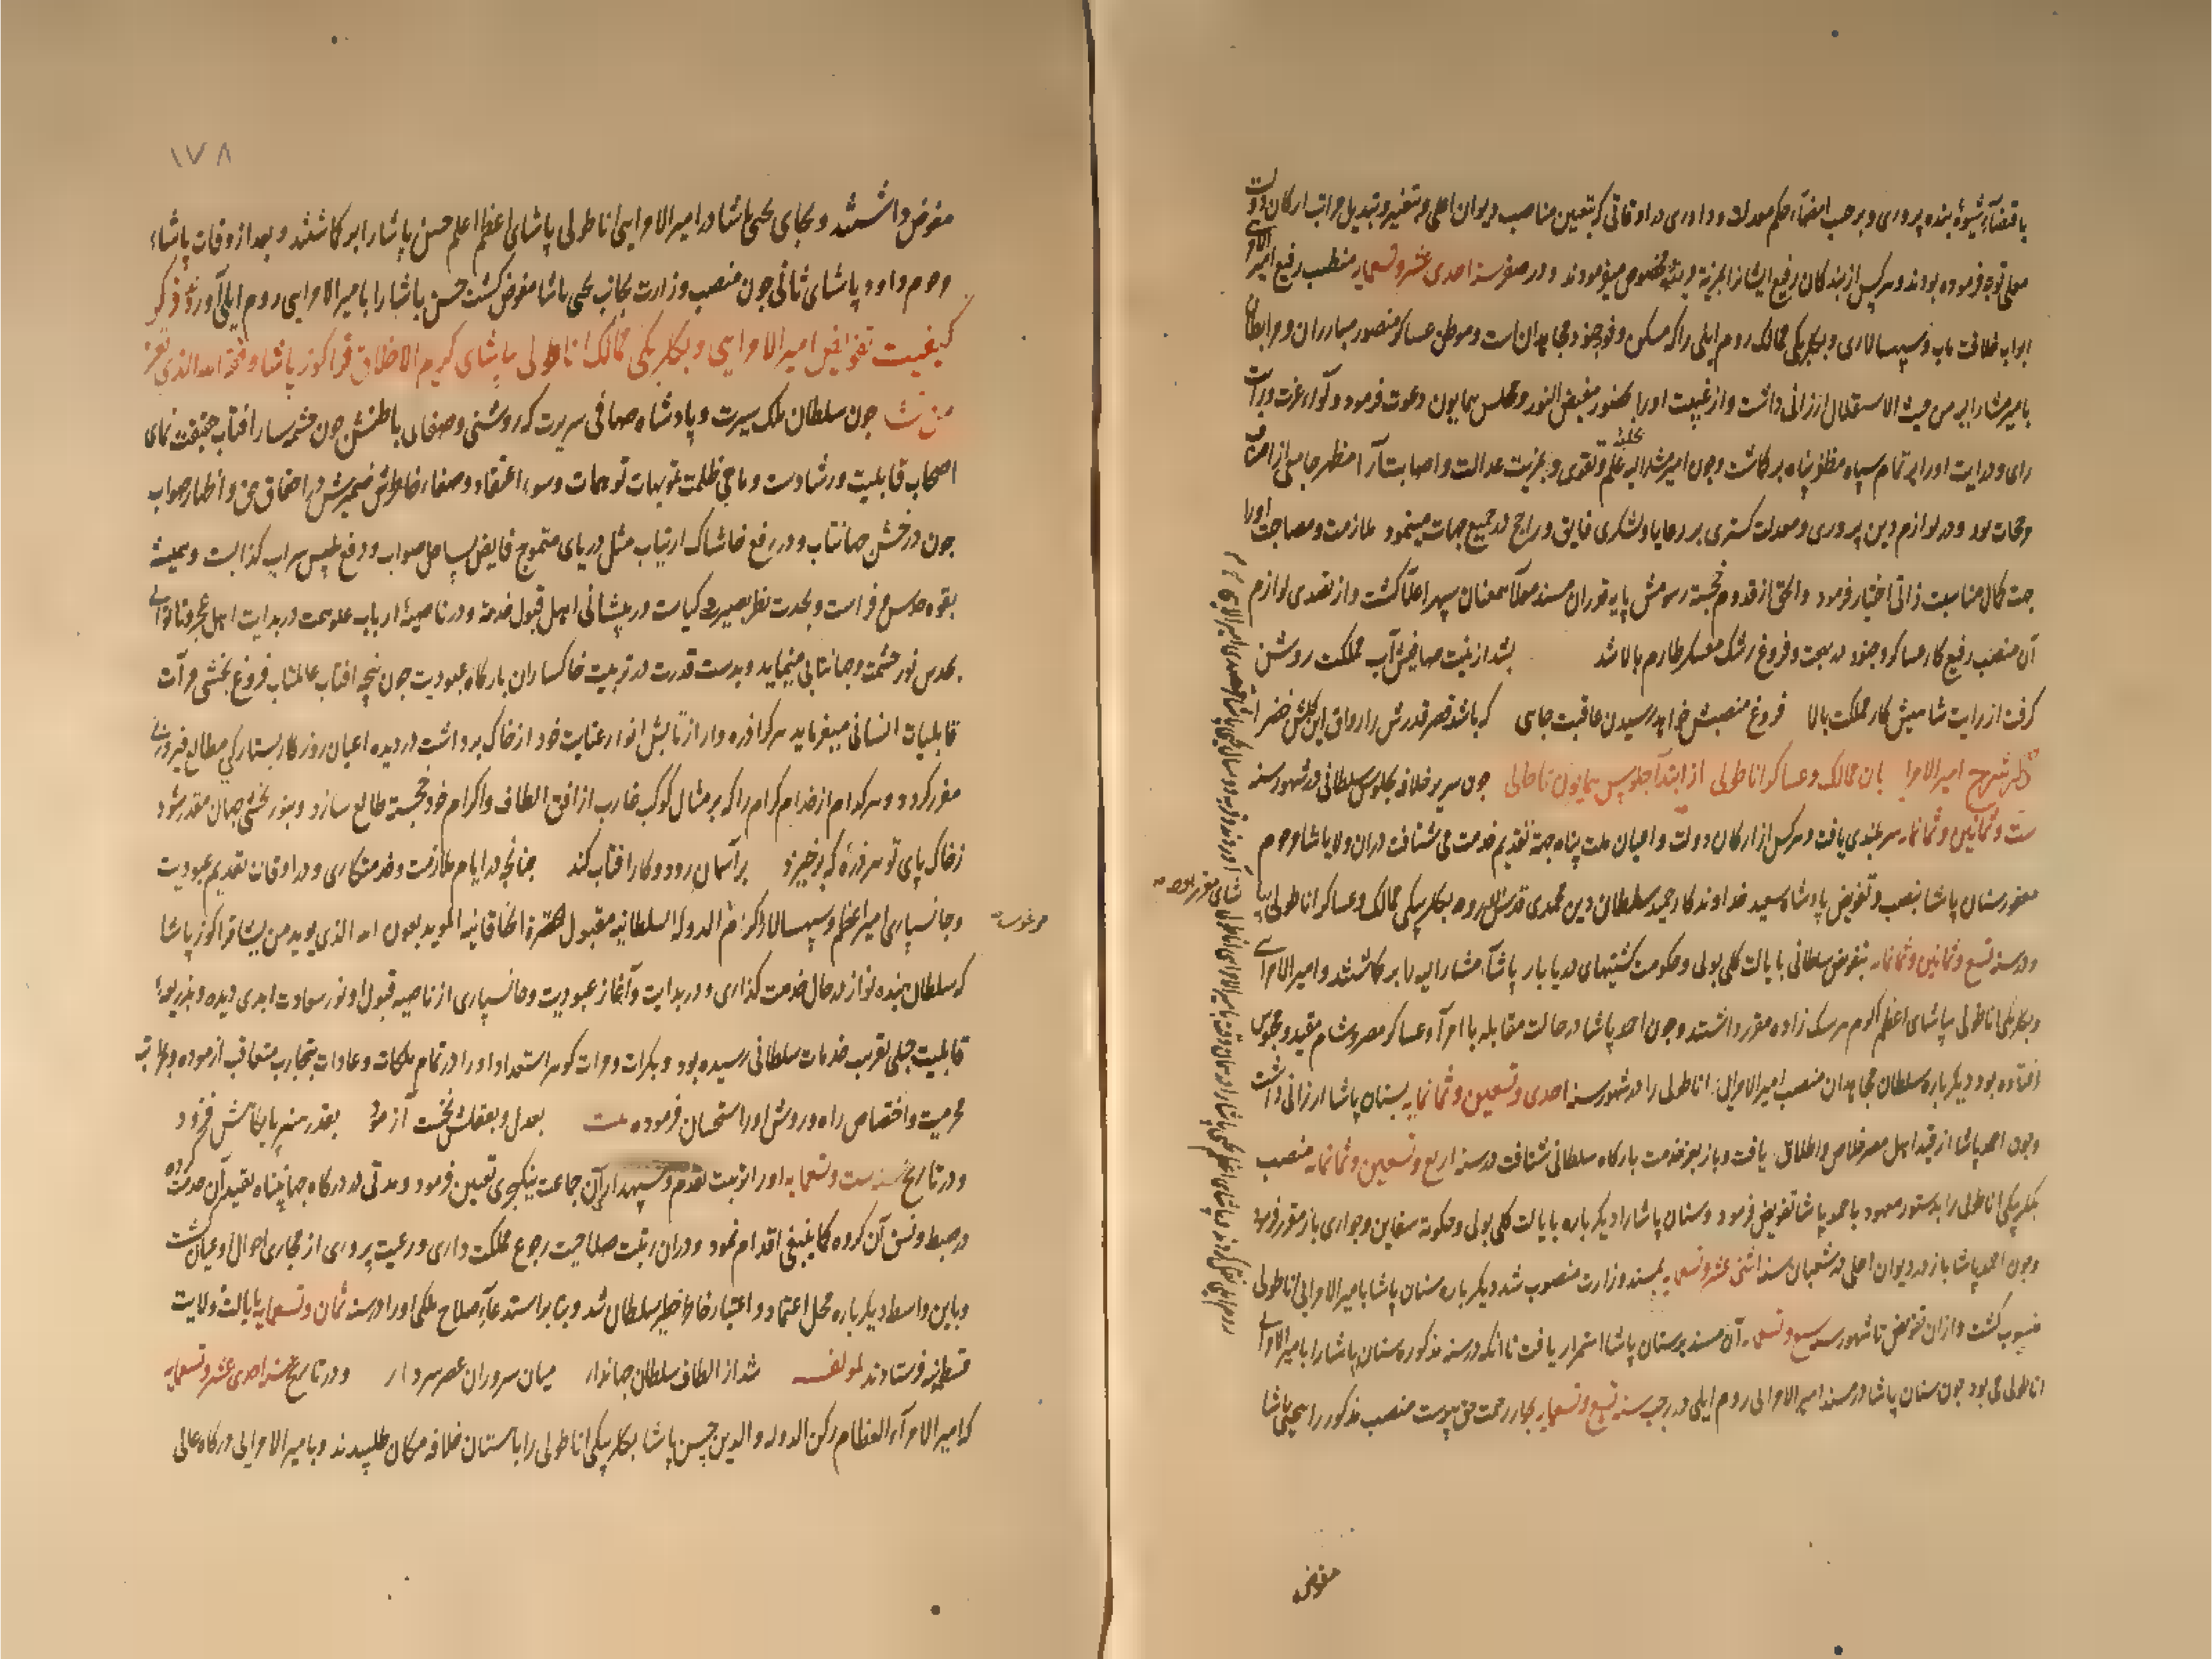 باقتضآء شیوهٔ بنده پروری و بر حسب امضاء حکم معدلت و داوری در اوقاتی که بتعیین مناصب دیوان اعلی و تغییر و تبدیل مراتب ارکان دولت
معلی توجه فرموده بودند و هر کس از بندکان رفیع ایشانرا بمزید مخصوص میفرمودند و در صفر سنه احدی عشر و تسعمایه منصب رفیع امیر الامرایی
ابواب خلافت ماب و سپهسالاری و بکلربکی ممالک روم ایلی را که مسکن و جنود مجاهدان است و موطن عساکر منصور مبارزان و مرابطان
بامیر مشار الیه من حیث الاستقلال ارزانی داشت و از غیبت اورا بحضور مفیض النور و مجلس همایون دعوت فرمود و لوآء عزت
رای و درایت اورا بر تمام سپاه مظفر پناه برکاشت و چون امیر مشار الیه بحلیهٔ علم و تقوی و بمزیت عدالت و اصابت آرا مظهر جامع
بود و در لوازم دین پروری و معدلت کستری بر رعایا و لشکری فایق و راجح در جمیع جهات مینمود ملازمت و مصاحبت اورا
جهت کمال مناسبت ذاتی اختیار فرمود والحق از قدوم خجسته رسومش پایه مسند معلا سپهر اعلا کشت و از تصدی لوازم
آن منصب رفیع کار عساکر و جنود در بهجت و فروغ رشک معسکر طارم بالا شد بشد از مملکت روشن
کرفت از رایت شاهیش کار مملکت بالا فروغ منصبش خواهد رسیدن عاقبت جایی که باشد قصر قدرش را رواق این کلشن خضرا
ذکر شرح امیر الامرا یان ممالک و عساکر اناطولی از ابتدآ جلوس همایون تاحالی چون سریر خلافه بجلوس سلطانی در شهور سنه
ست و ثمانین و ثمانمایه سربلندی یافت و هر کس از ارکان دولت و اعیان ملت پناه جهة تقدیم خدمت می شتافت دران ولا پاشا مرحوم
مغفور سنان پاشا بنصب و تفویض پادشاه سعید خداوندکار حمید سلطان دین محمدی قدس الله روحه بکلربیکی ممالک و عساکر اناطولی
و در سنه تسع و ثمانین و ثمانمایه بتفویض سلطانی بایالت کلی بولی و حکومت کشتیهای دریا بار پاشاء مشار الیه را برکاشتند و امیر الامرایی
و بکلربکی اناطولی بپاشای اعظم اکرم هرسک زاده مقرر داشتند و چون احمد پاشا در حالت مقابله با امرآء عساکر مصر و شام مقید و محبوس
افتاده بود دیکر باره سلطان مجاهدان منصب امیر الامرایی اناطولی را در شهور سنه احدی و تسعین و ثمانمایه بسنان پاشا ارزانی داشت
و چون احمد پاشا از قید اهل مصر خلاص و اطلاق یافت و باز بعز خدمت بارکاه سلطانی شتافت در سنه اربع و تسعین و ثمانمایه منصب
بکلربیکی اناطولی را بدستور معهود باحمد پاشا تفویض فرمود و سنان پاشارا دیکر باره بایالت کلی بولی و حکومة سفاین و جواری باز مقرر فرمود
و چون احمد پاشا باز در دیوان اعلی در شعبان سنه اثنی عشر و تسعمایه بمسند وزارت منصوب شد دیکر باره سنان پاشا بامیر الامرایی اناطولی
منسوب کشت و ازان تفویض تا شهور سنه سبع و تسعمایه آن مسند بر سنان پاشا استمرار یافت تا آنکه در سنه مذکوره سنان پاشارا بامیر الامرایی
اناطولی می بود چون سنان پاشا در مسند امیر الامرایی روم ایلی در رجب سنه تسع و تسعمایه بجوار رحمت حق پیوست منصب مذکور را بیحیی پاشا
مفوض
۱۷۸
مفوض داشتند و بجای یحیی پاشا در امیر الامرایی اناطولی پاشای اعظم اعلم حسن پاشارا برکاشتند و بعد از وفات پاشاء
مرحوم داود پاشای ثانی چون منصب وزارت بجانب یحیی پاشا مفوض کشت حسن پاشارا بامیر الامرایی روم ایلی آورده ذکر
کیفیت تفویض امیر الامرایی و بکلربکی ممالک اناطولی بپاشای کریم الاخلاق قراکوز پاشا وفقه الله الذی یعز
من یشا چون سلطان ملک سیرت و پادشاه صافی سریرت که روشنی و صفای باطنش چون چشمه سار افتاب حقیقت نمای
اصحاب قابلیت و رشادست و ماحی ظلمت تمویهات توهمات و سوء اعتقاد و صفاء خاطرش ضمیرش در احقاق حق و اظهار صواب
چون درخشش جهانتاب و در رفع خاشاک ارتیاب مثل دریای متموج فایض بساحل صواب و دفع تلبیس سراب کذابست و همیشه
بقوه حدس و فراست و بحدت نظر بصیرت و کیاست در پیشانی اهل قبول خدمة و در ناصیهٔ ارباب علو همت در بدایت اهل عجز و ناتوانی
بحدس نور حشمت و جهانتابی مینماید و بدست قدرت در تربیت خاکساران بارکاه عبودیت چون پنجه افتاب عالمتاب فروغ بخشی مرآت
قابلیات انسانی میفرماید هر کرا ذره وار از تابش انوار عنایت خود از خاک برداشت در دیده اعیان روزکار بستارکی مطالع فیروزی
مقرر کردد و هر کدام از خدام کرام را که بر مثال کوکب غارب از افق الطاف و اکرام خود خجسته طالع سازد و بنور بخشی جهان مقرر شود
ز خاک پای تو هر ذره که برخیزد بر آسمان رود و کار افتاب کند چنانچه در ایام ملازمت و خدمتکاری و در اوقات تقدیم عبودیت
و جانسپاری امیر اعظم و سپهسالار اکرم فخر الدوله السلطانیه مقبول الحضرة الخاقانیه الموید بعون الله الذی یوید من یشا قراکوز پاشا
که سلطان بنده نواز در حال خدمت کذاری و در بدایت و آغاز عبودیت و جانسپاری از ناصیه قبول او نور سعادت ابدی دیده و بذریعهٔ
قابلیت جبلی بقرب خدمات سلطانی رسیده بود و بکرات و مرات کوهر استعداد اورا در تمام ملکات و عادات بتجارب متعاقب ازموده و بمراتب
محرمیت و اختصاص راه و روش اورا استحسان فرموده بیت بعدل و بعقلش نخست آزمود بقدر هنر پایکاهش فزود
و در تاریخ سنه ست و تسعمایه اورا برتبت تقدم و سپهداری آن جماعت ینکیچری تعیین فرمود و مدتی در درکاه جهانپناه بتقید آن خدمت
در ضبط و نسق آن کروه کما ینبغی اقدام نمود و دران رتبت صلاحیت رجوع مملکت داری و رعیت پروری از مجاری احوال او عیان کشت
و باین واسطه دیکر باره محل اعتماد و اعتبار خاطر خطیر سلطان شد و بنا بر استدعآء صلاح ملکی اورا در سنه ثمان و تسعمایه بایالت ولایت
قسطمونیه فرستادند لمولفه شد از الطاف سلطان جهاندار میان سروران عصر سردار و در تاریخ سنه احدی عشر و تسعمایه
که امیر الامرآء العظام رکن الدوله و الدین حسن پاشا بکلربیکی اناطولی را باستان خلافه مکان طلبیدند و بامیر الامرایی درکاه عالی